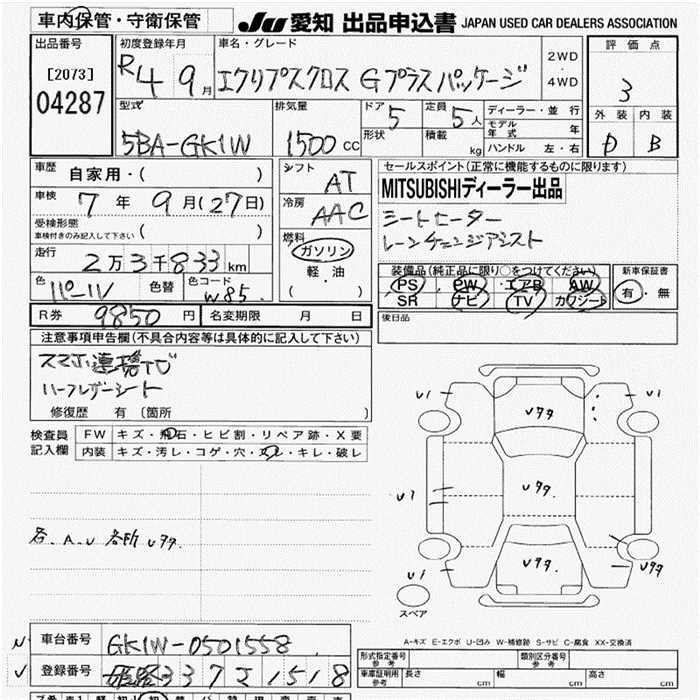 車内保管・守衛保管
JU 愛知 出品申込書 JAPAN USED CAR DEALERS ASSOCIATION
出品番号
[2073]
04287
初度登録年月
R4 9月
車名・グレード
エクリプスクロス Gプラスパッケージ
2WD
・
4WD
評価点
3
外装 内装
D B
型式
5BA-GK1W
排気量
1500 cc
ドア 5
形状
定員 5人
積載 kg
ディーラー・並行
モデル年式 年
ハンドル 左・右
車歴 自家用・( )
車検 7年 9月(27日)
受検形態
車検付きのみ記入して下さい ( )
走行 2万3千833km
色 パール 色替 色コード W85
R券 9850円 名変期限 月 日
シフト AT
冷房 AAC
燃料
ガソリン
軽・油
( )
セールスポイント(正常に機能するものに限ります)
MITSUBISHIディーラー出品
シートヒーター
レーンチェンジアシスト
装備品(純正品に限り○をつけてください)
PS PW エアB AW
SR ナビ TV カワシート
新車保証書
有・無
後日品
注意事項申告欄(不具合内容等は具体的に記入して下さい)
スマホ連携ナビ
ハーフレザーシート
修復歴 有 〔箇所 〕
検査員記入欄
FW キズ・飛石・ヒビ割・リペア跡・X要
内装 キズ・汚レ・コゲ・穴・スレ・キレ・破レ
各、A、U 各所 Uタタ
U1
U1
Uタタ
U1
Uタタ
Uタタ
U1
Uタタ
スペア
A-キズ E-エクボ U-凹み W-補修跡 S-サビ C-腐食 XX-交換済
車台番号 GK1W-0501558
登録番号 姫路337 さ1518
型式指定番号 参考
類別区分番号 参考
車庫証明用 参考 長さ cm 幅 cm 高さ cm